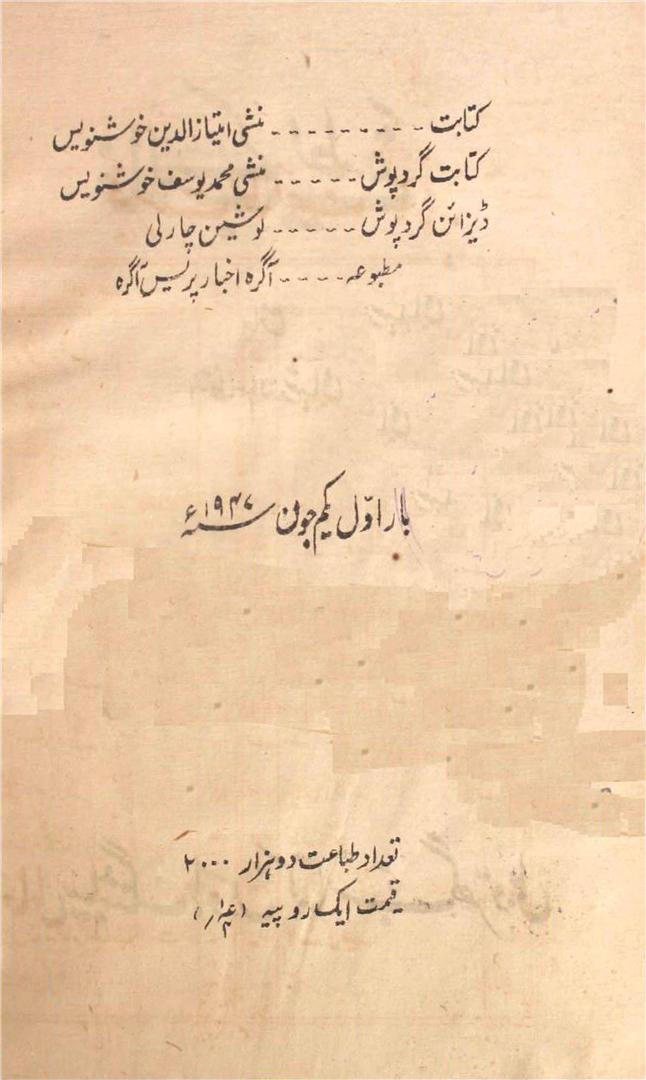 کتابت ---------- منشی امتیاز الدین خوشنویس
کتابت گرد پوش ----- منشی محمد یوسف خوشنویس
ڈیزائن گرد پوش ----- لوشین چارلی
مطبوعہ ---- آگرہ اخبار پریس آگرہ
بار اوّل یکم جون سنہ ۱۹۴۷ء
تعداد طباعت دو ہزار ۲۰۰۰
قیمت ایک روپیہ